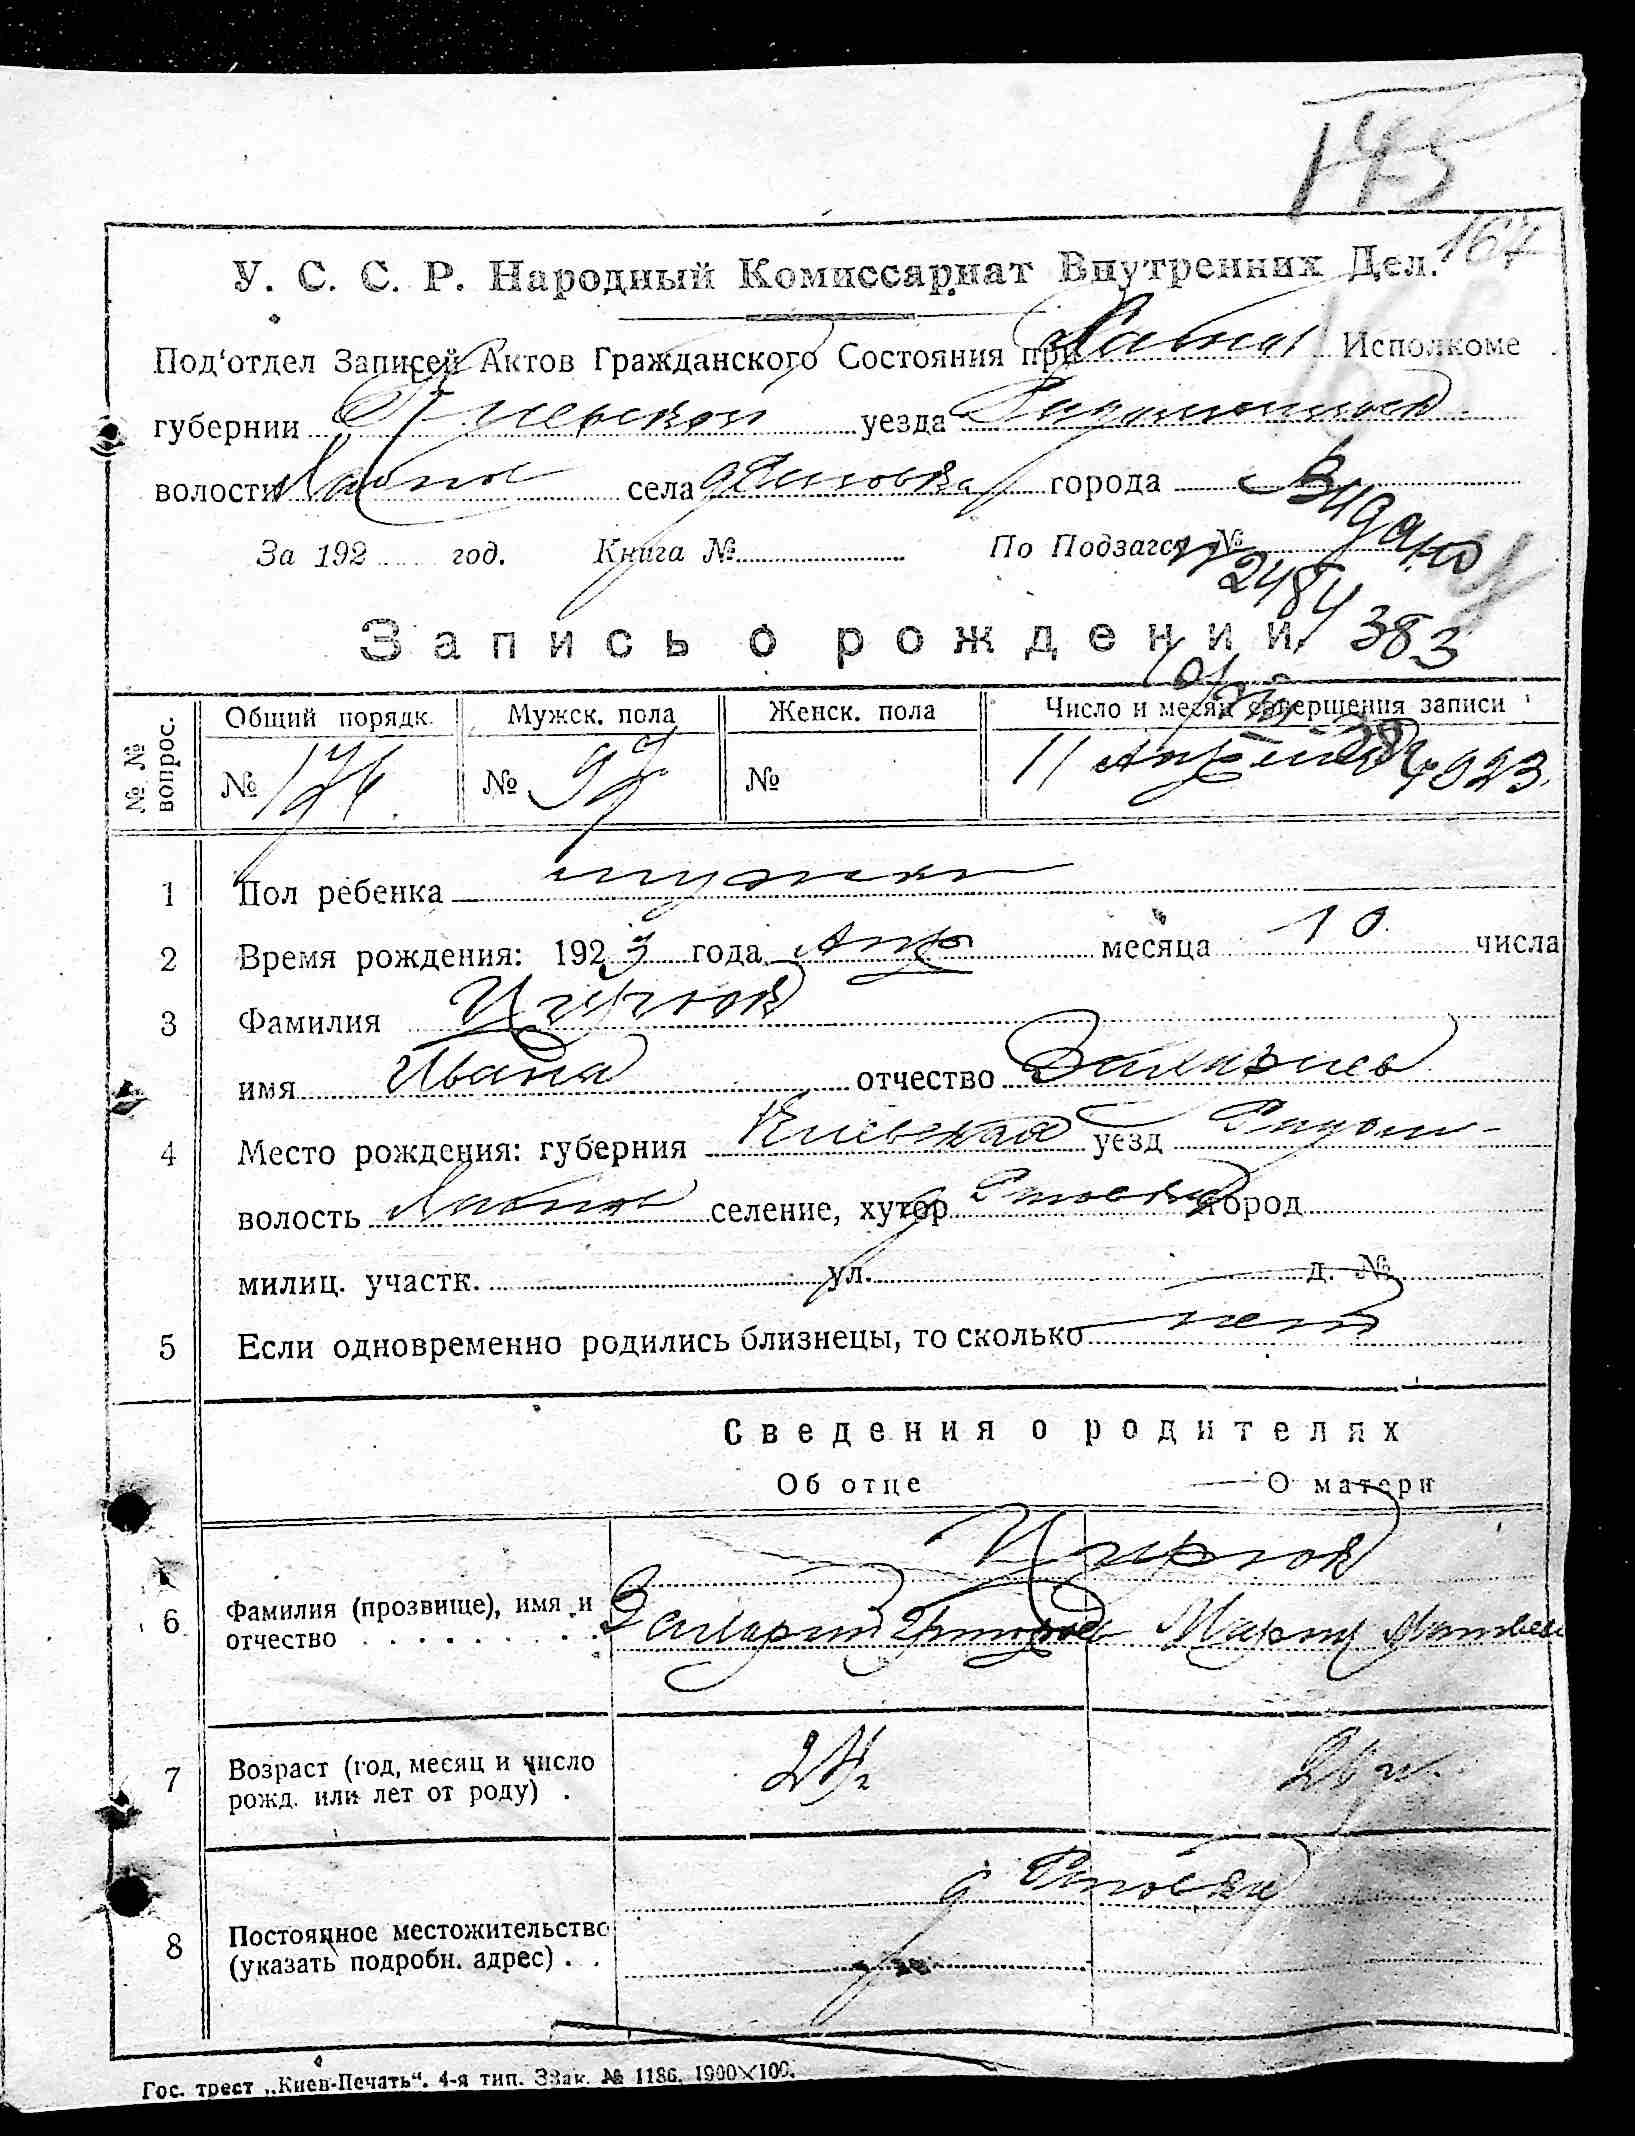 145
167
У. С. С. Р. Народный Комиссариат Внутренних Дел.
Под'отдел Записей Актов Гражданского Состояния при Исполкоме
губернии Киевской уезда
волости села города
Видано
За 192 год. Книга № По Подзагса №
2484
383
Запись о рождении
№ № вопрос. Общий порядк. Мужск. пола Женск. пола Число и месяц совершения записи
№ 176. № 97 № 11 Апреля 1923.
1 Пол ребенка мужск
2 Время рождения: 1923 года Апр месяца 10 числа
3 Фамилия Цирюк
имя Ивана отчество Захариев
4 Место рождения: губерния Киевская уезд Радом-
волость селение, хутор город
милиц. участк. ул. д. №
5 Если одновременно родились близнецы, то сколько нет
Сведения о родителях
Об отце О матери
Цирюк
6 Фамилия (прозвище), имя и
отчество Захарий Григоров Мария Матвеев
7 Возраст (год, месяц и число
рожд. или лет от роду)
8 Постоянное местожительство
(указать подробн. адрес)
Гос. трест „Киев-Печать“. 4-я тип. ЗЗак. № 1186, 1900×100.